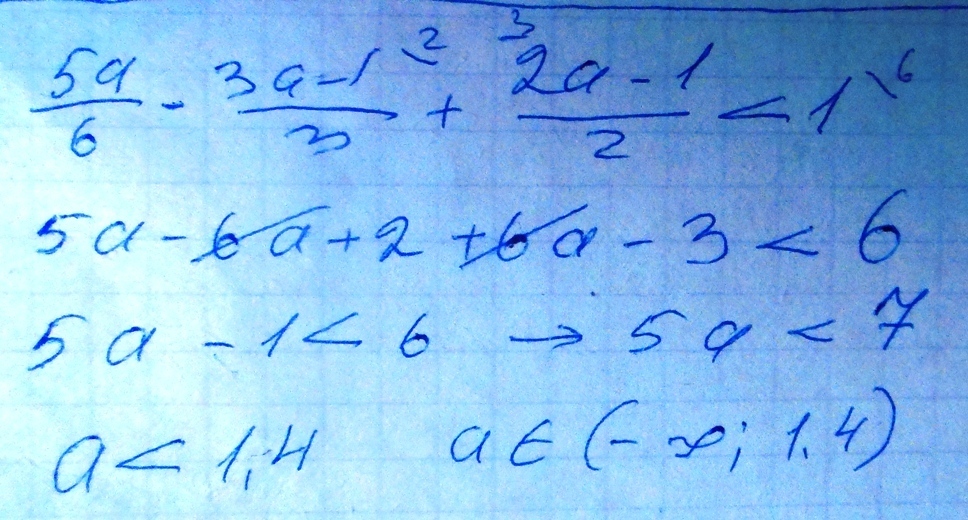 5a/6 - 3a-1\²/3 + ³2a-1/2 < 1\⁶
5a - 6a + 2 + 6a - 3 < 6
5a - 1 < 6 → 5a < 7
a < 1,4 a ∈ (-∞; 1.4)